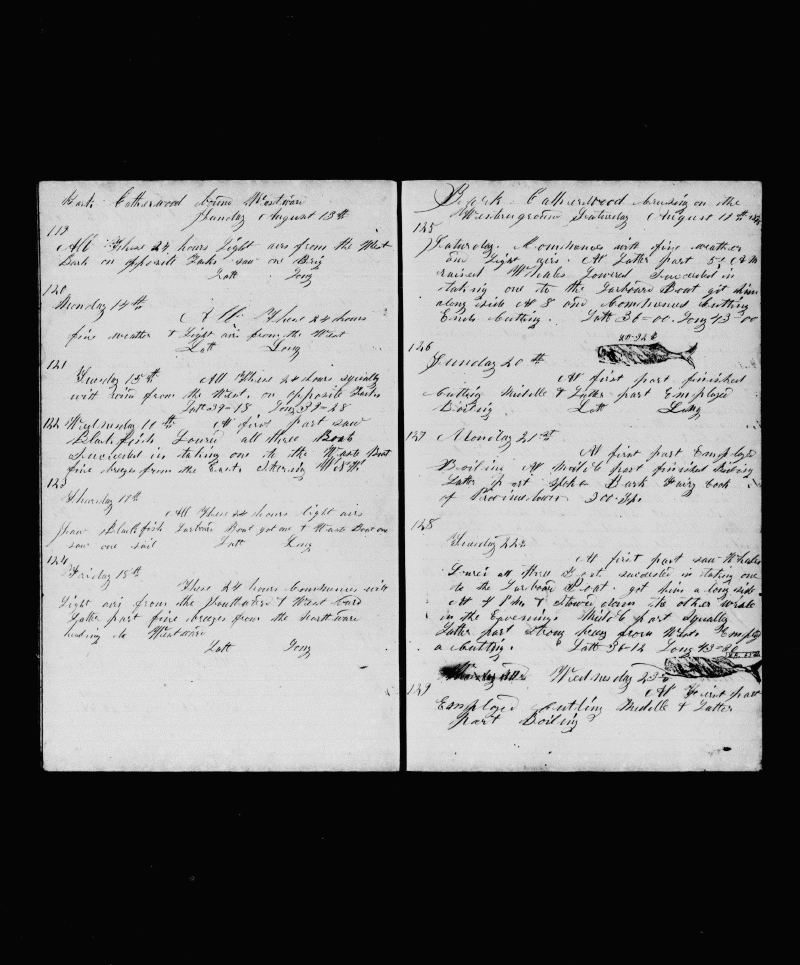 Bark Catherwood bound Westward
Sunday August 13th
119
All These 24 hours Light airs from the West
Bark on opposite Tacks saw one Brig
Latt Long
120
Monday 14th
All These 24 hours
fine weather & Light airs from the West
Latt Long
121
Tuesday 15th All These 24 hours squally
with from the West. on opposite Tacks
Latt 39-18 Long 39-28
122 Wednesday 16th At first part saw
Blackfish Lowerd all three Boats
succeeded in taking one to the Waste Boat
fine breezes from the East Stearing
123
Thursday 17th
All These 24 hours light airs
saw Blackfish Larboard Boat got one & Waste Boat one
saw one sail Latt Long
124
Friday 18th
These 24 hours Commences with
Light airs from the & West ward
Latter part fine breezes from the
heading to Westward
Latt Long
Bark Catherwood Cruising on the
Westernground Saturday August
125
Saturday. Commences with fine weather
and Light airs. At Latter part 5 A M
raised Whales Lowered Succeeded in
taking one to the Larboard Boat got him
along side At 8 and Commenced Cutting
Ends Cutting. Latt 36=00. Long 43=00
126
Sunday 20th
At first part finished
Cutting Midelle & Latter part Employed
Boiling Latt Long
127 Monday 21st
At first part Employed
Boiling At Middle part finished Boiling
Latter part spoke Bark
of Provincetown 200
128
Tuesday 22
At first part saw Whales
Lowerd all three Boats. succeeded in taking one
to the Larboard Boat. got him a long side
At 4 P M & Stowed down the other whale
in the Eavening. Middle part Squally
Latter part Strong breezes from West. Employed
a Cutting. Latt 36-12 Long 43=20
Wednesday 23
129
At First part
Employed Cutting Midelle & Latter
part Boiling